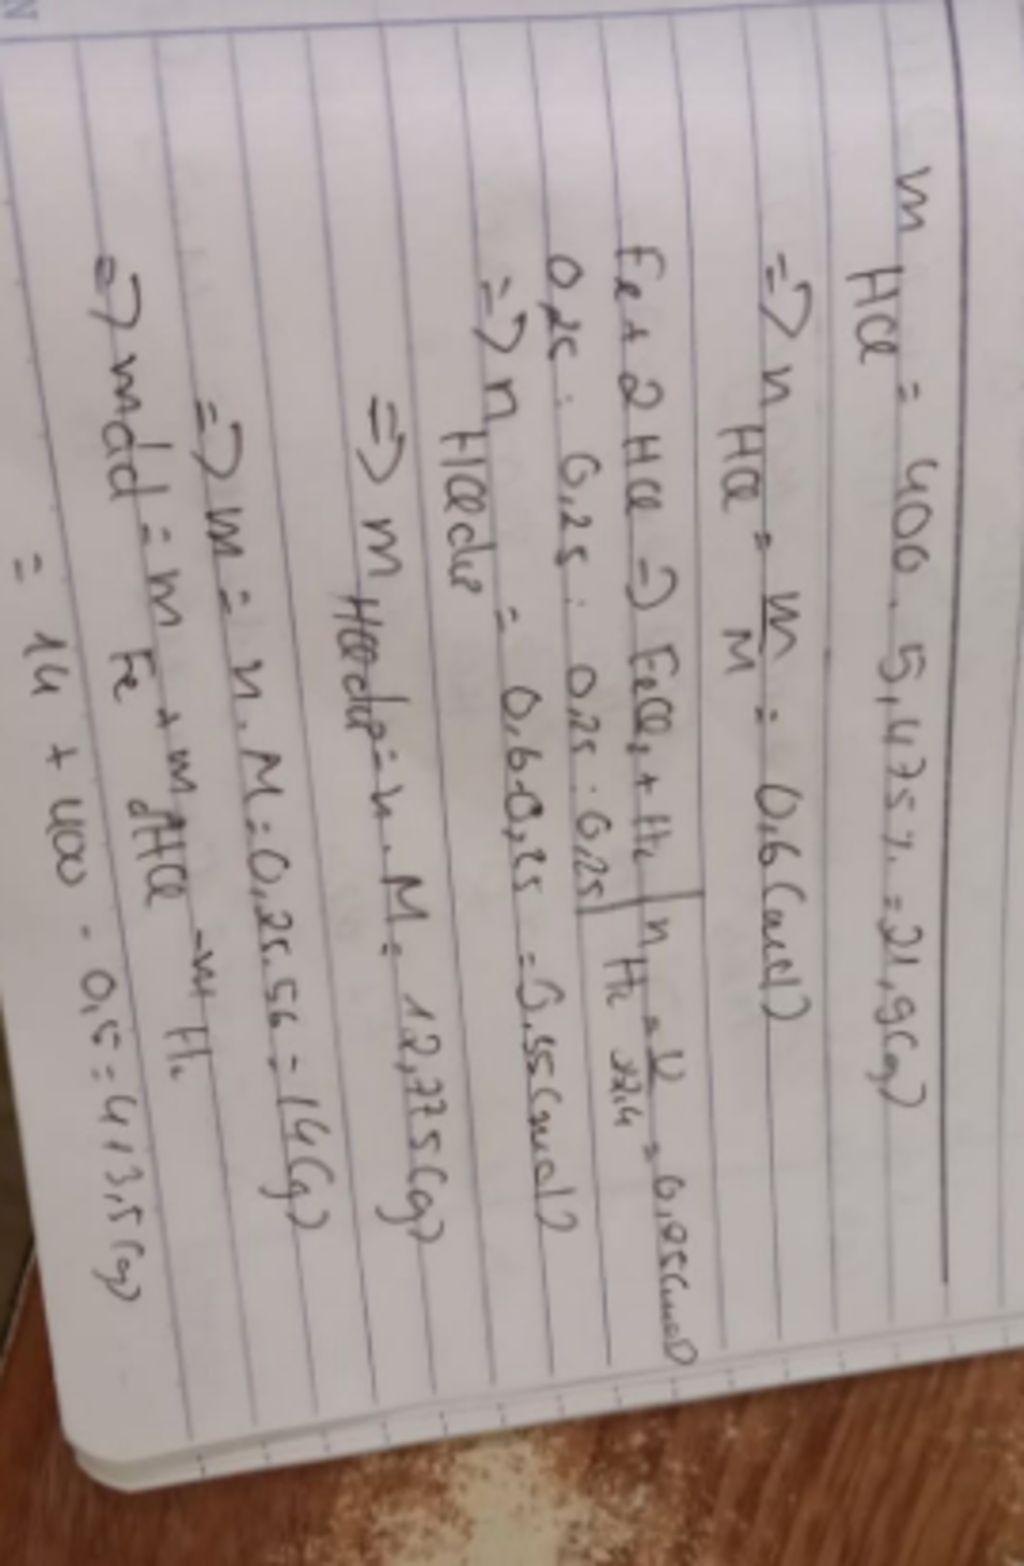 m HCl = 400 . 5,475% = 21,9(g)
=> n HCl = m/M = 0,6 (mol)
Fe + 2HCl => FeCl2 + H2 | n H2 = V/22,4 = 0,25(mol)
0,25 : 0,25 : 0,25 : 0,25
=> n HCl dư = 0,6-0,25 = 0,35(mol)
=> m HCl dư = n . M = 12,775(g)
=> m = n . M = 0,25.56 = 14(g)
=> mdd = m Fe + m dHCl - m H2
= 14 + 400 - 0,5 = 413,5(g)